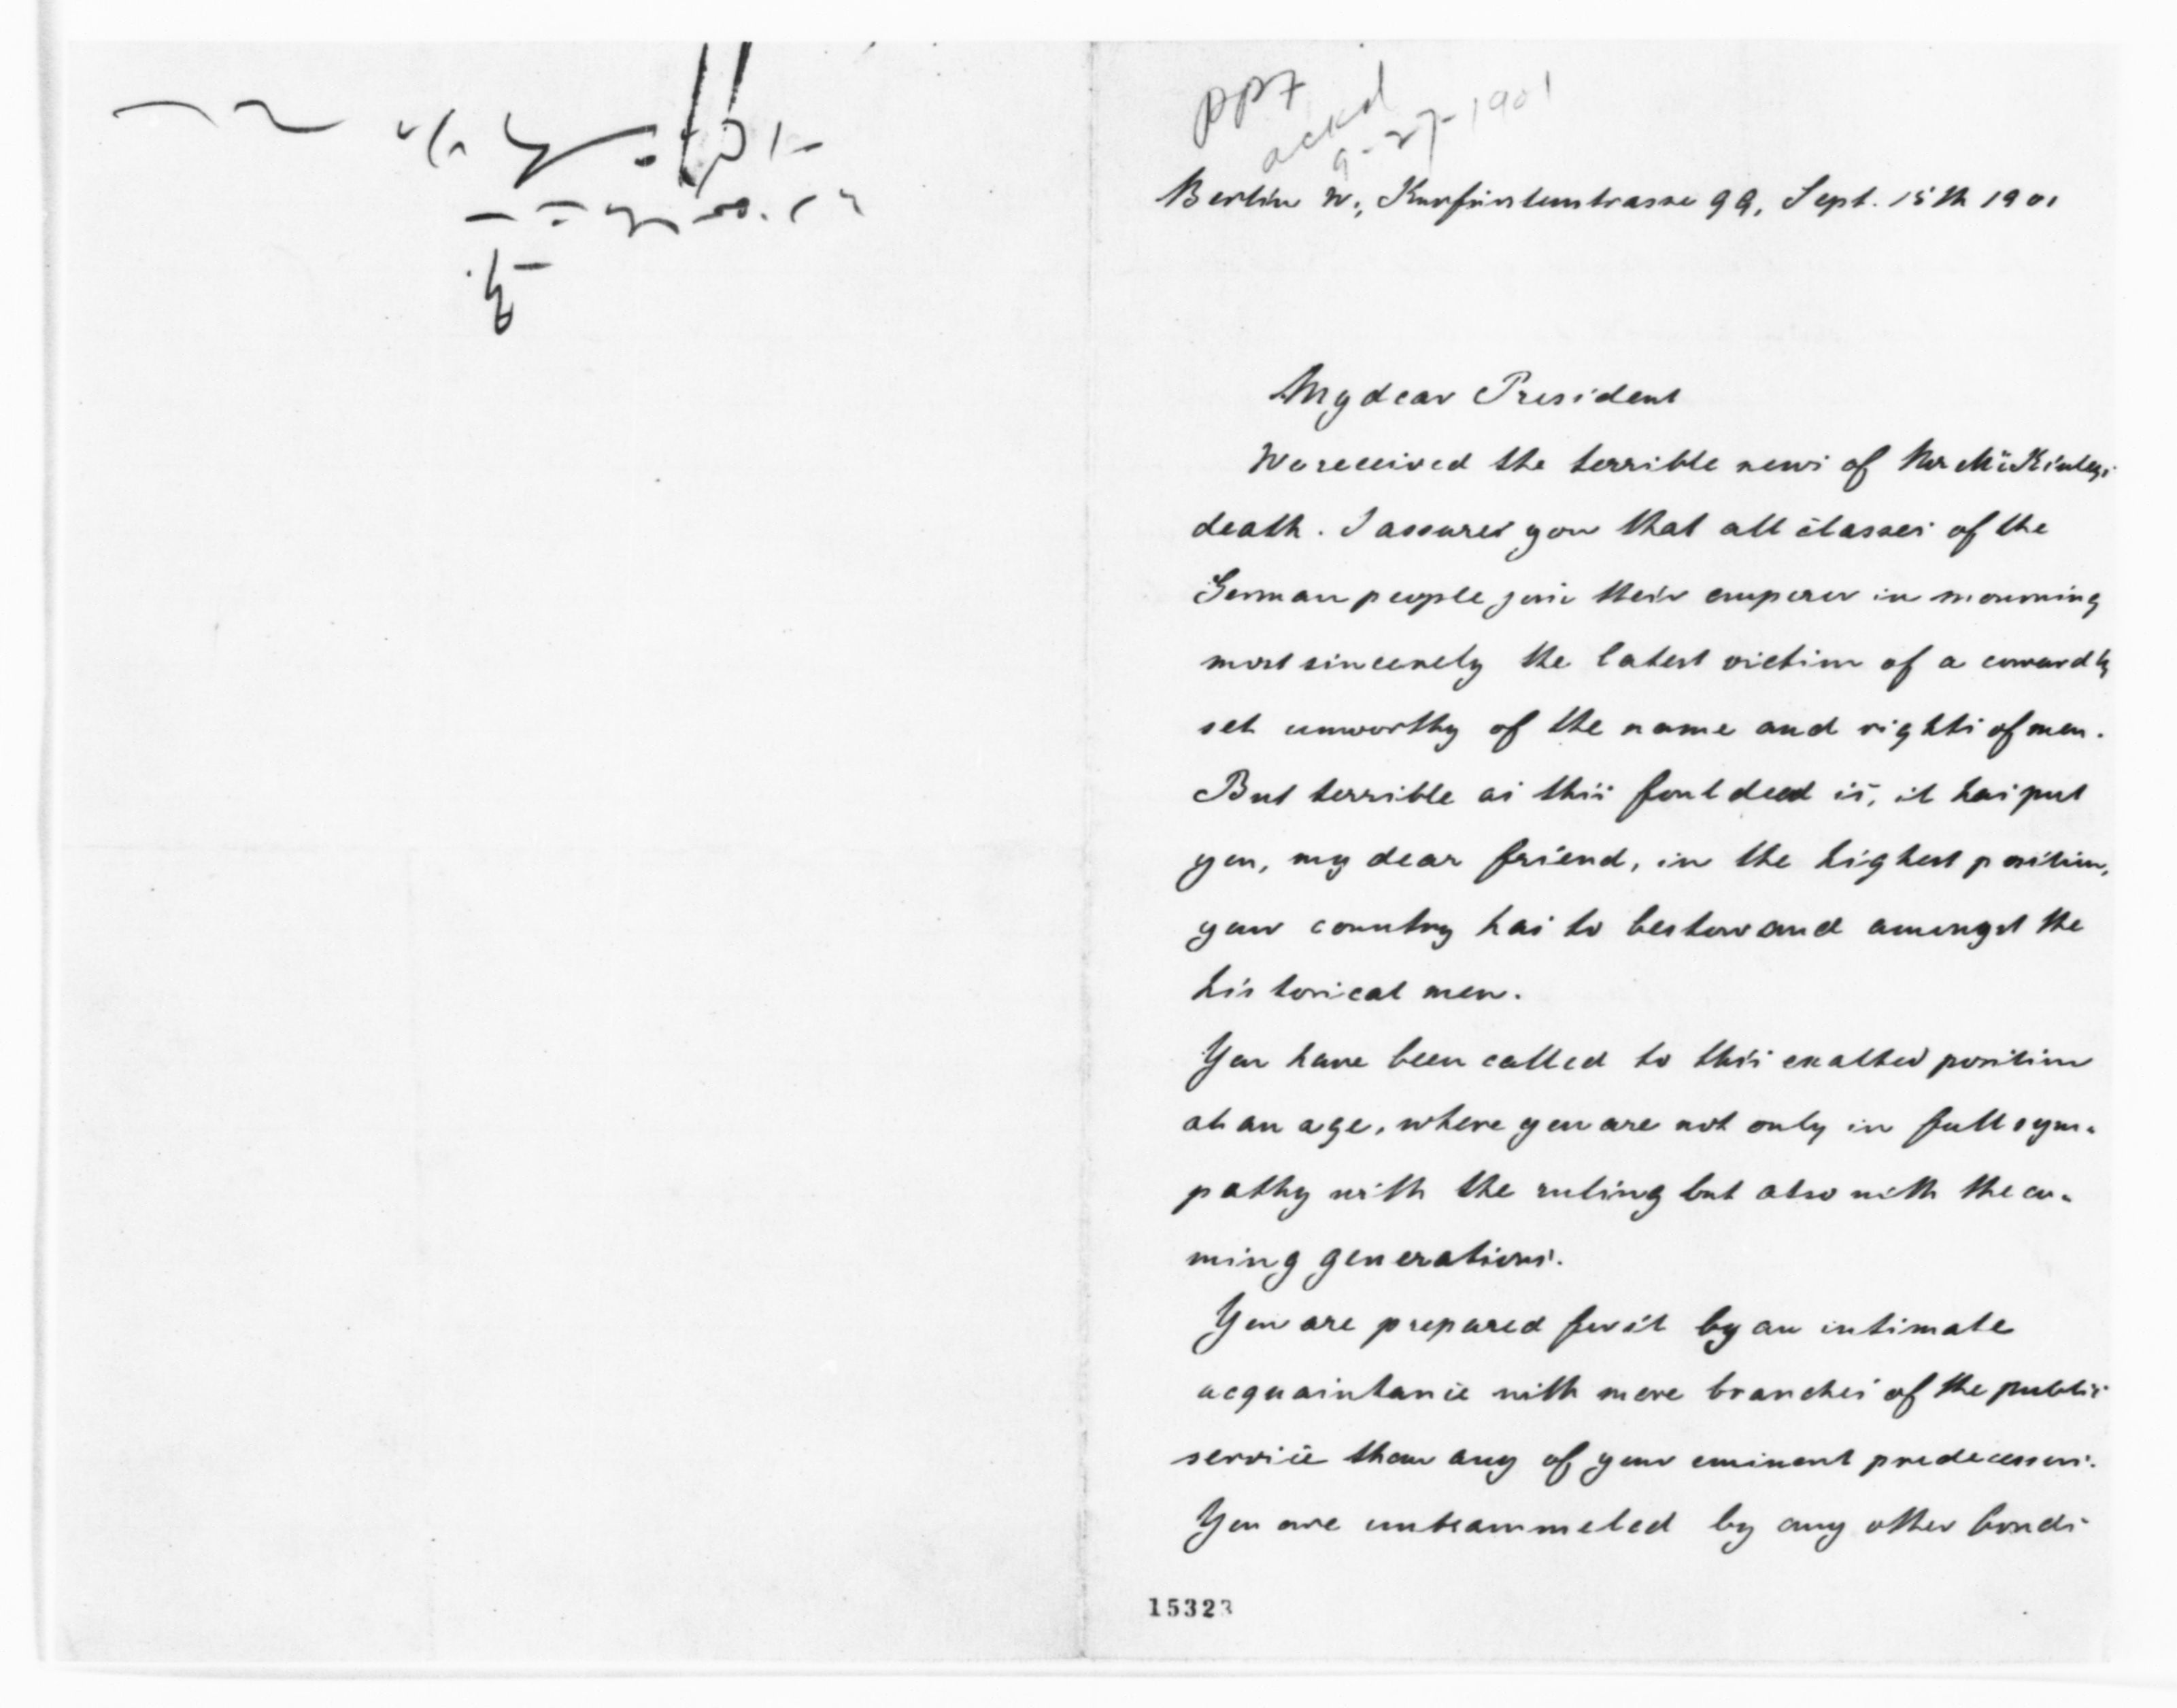 PPF
ackd
9-27-1901
Berlin W., Kurfürstenstrasse 99, Sept. 15th 1901
My dear President
We received the terrible news of Mr McKinleys
death. I assure you that all classes of the
German people join their emperor in mourning
most sincerely the latest victim of a cowardly
set unworthy of the name and rights of men.
But terrible as this foul deed is, it has put
you, my dear friend, in the highest position,
your country has to bestow and amongst the
historical men.
You have been called to this exalted position
at an age, where you are not only in full sym-
pathy with the ruling but also with the co-
ming generations.
You are prepared for it by an intimate
acquaintance with more branches of the public
service than any of your eminent predecessors.
You are untrammeled by any other bonds
15323